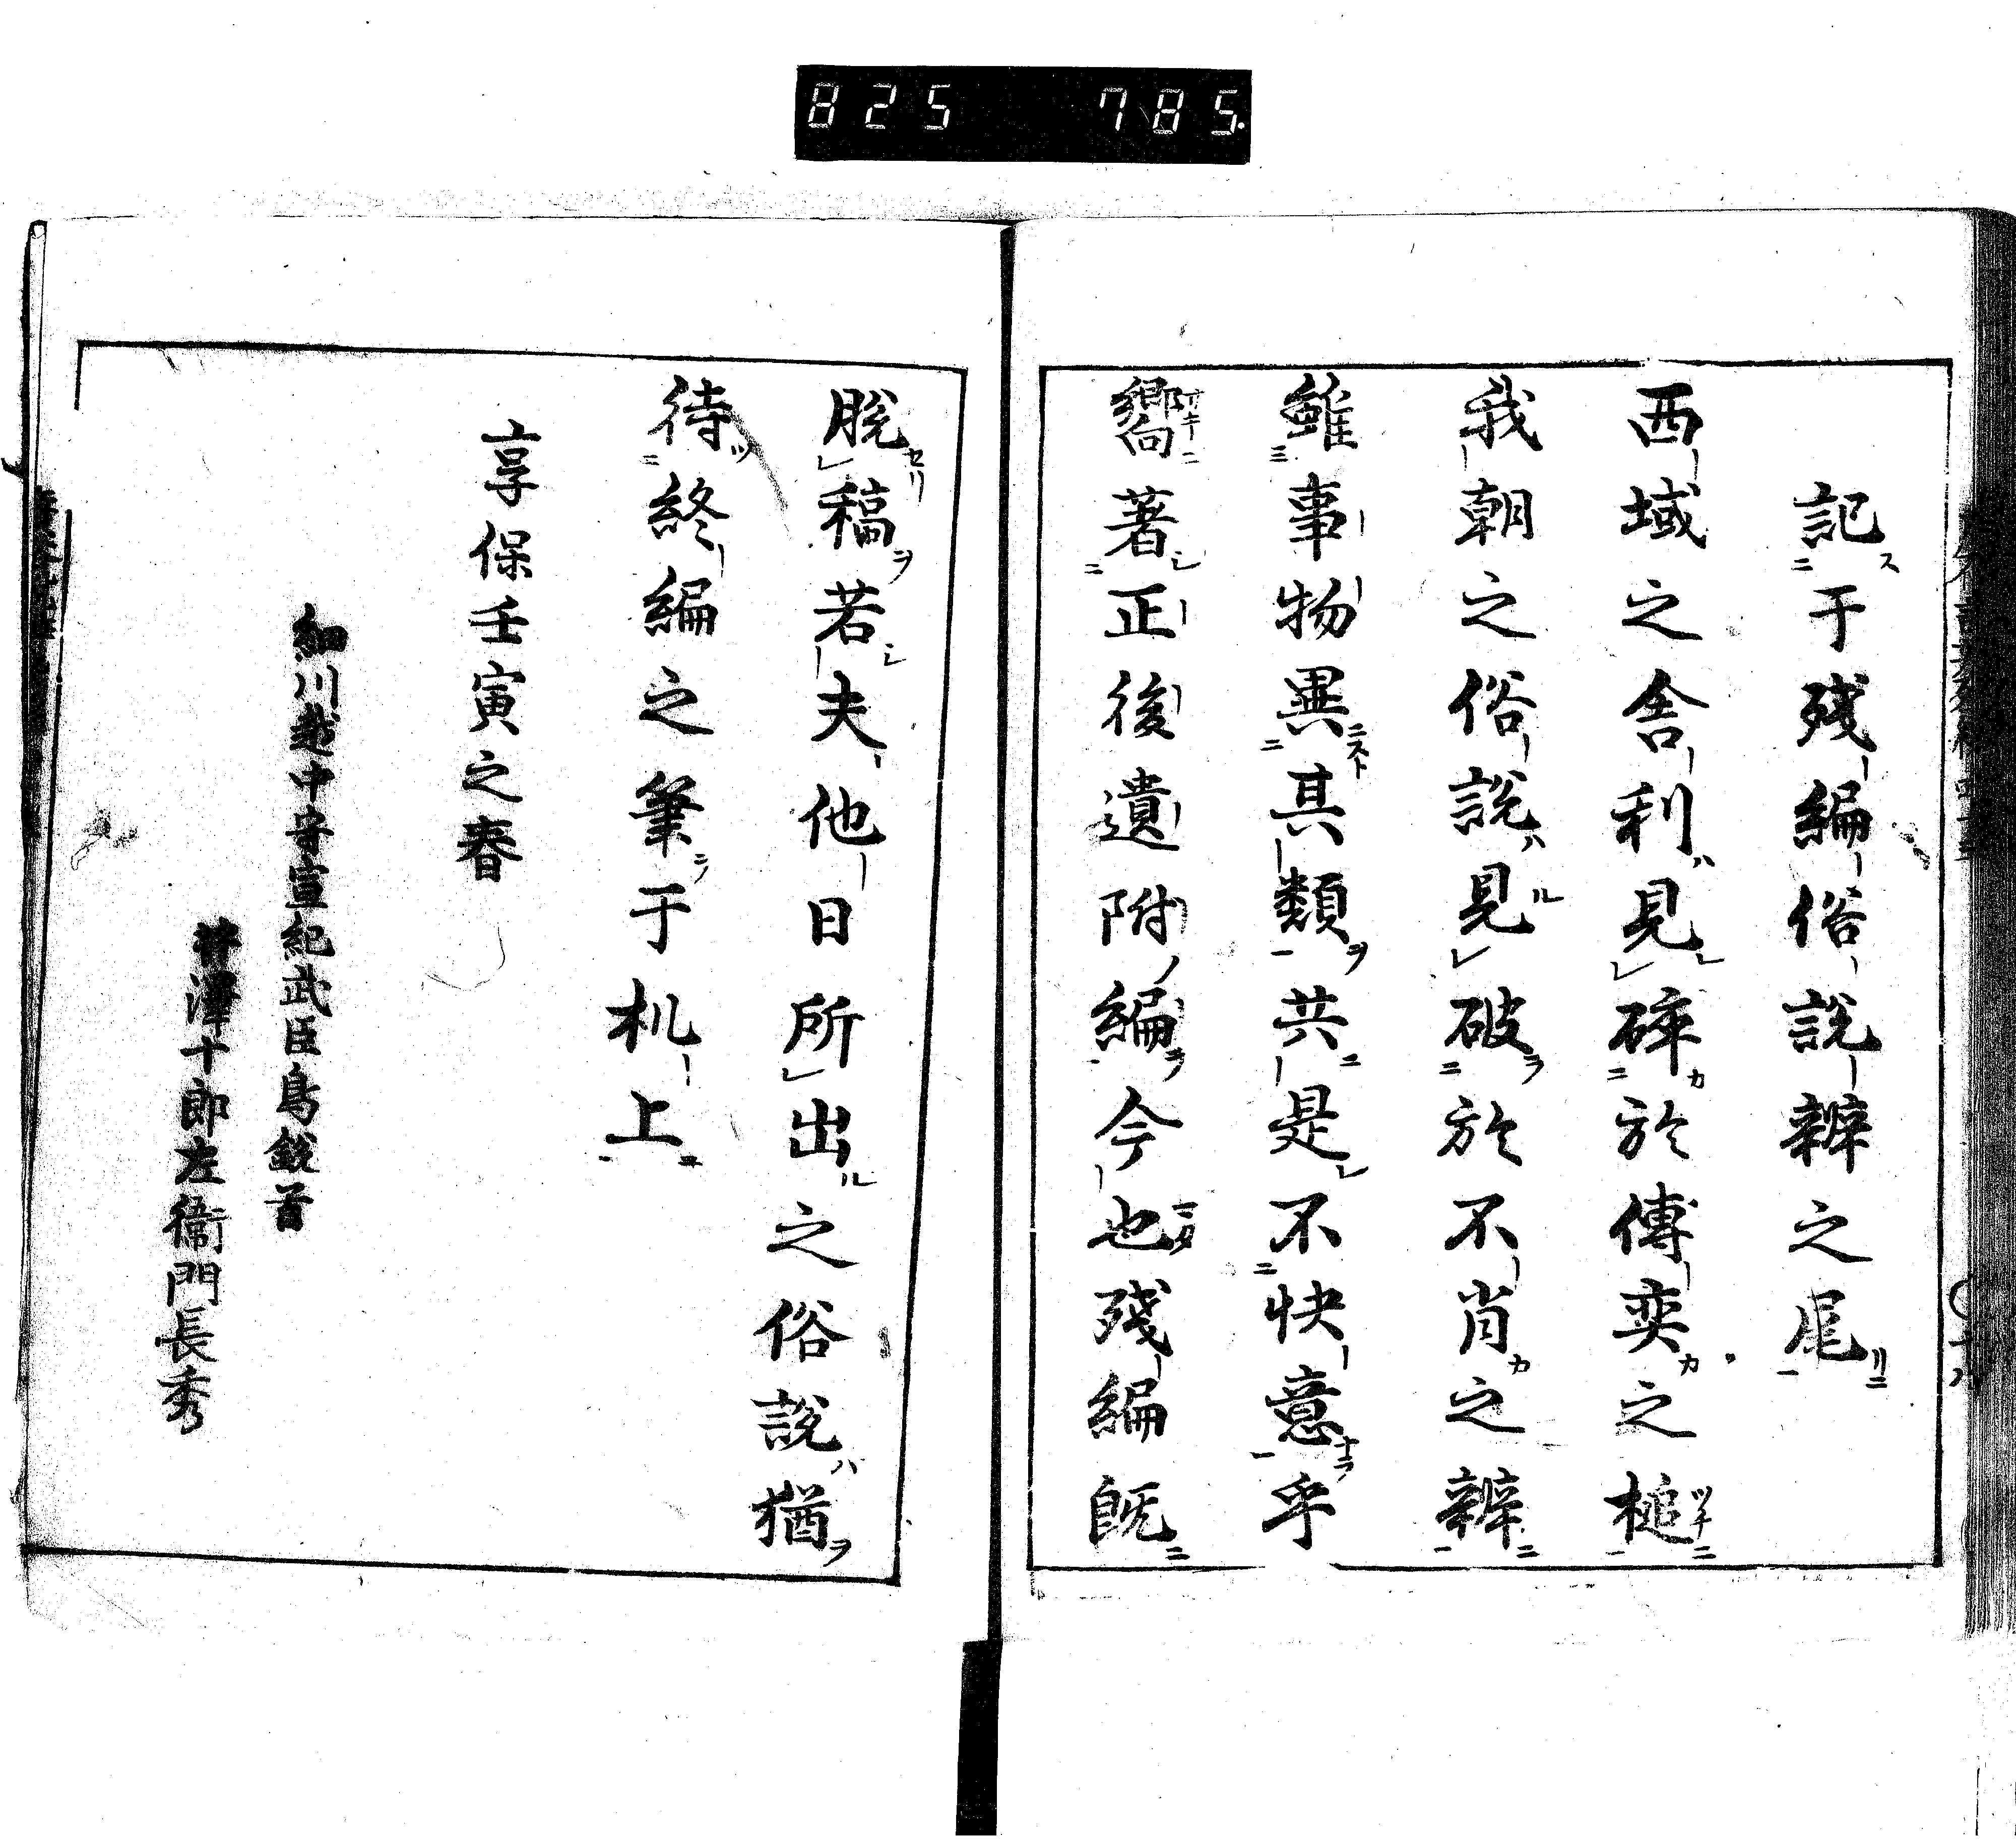 825 785.
記于殘編俗說辨之尾
西域之舎利見碎於傅奕之槌
我朝之俗說見破於不肖之辨
雖事物異其類共是不快意乎
嚮著正後遺附編今也殘編既
脫稿若夫他日所出之俗說猶
待終編之筆于机上
享保壬寅之春
細川越中守宣紀武臣鳥銃首
井澤十郎左衛門長秀